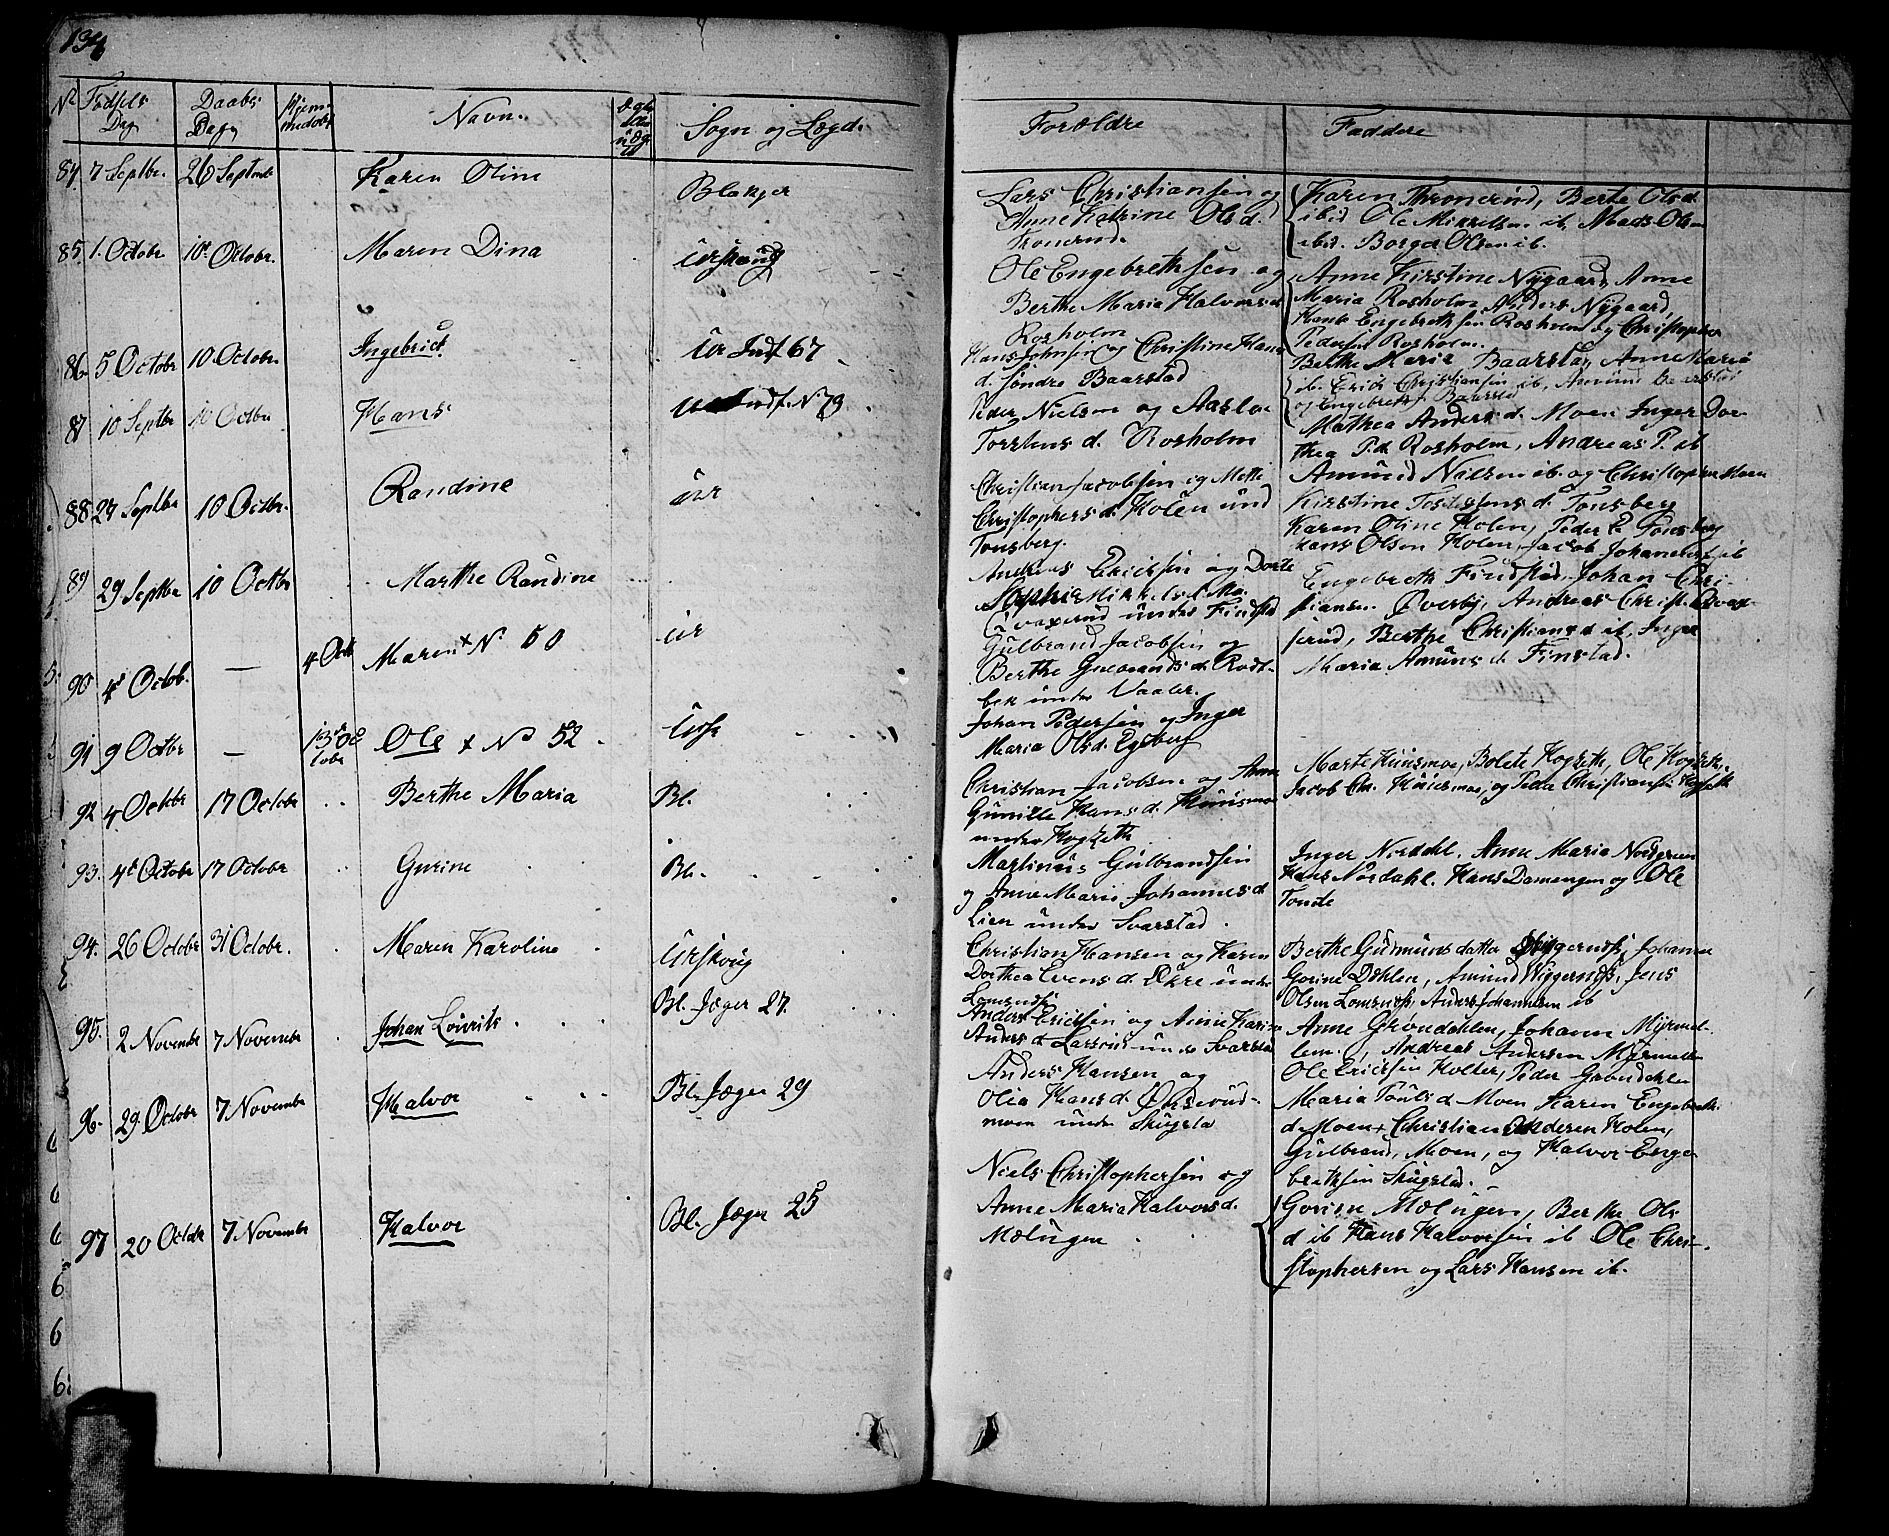 134
No Fødsels Dag Daabs Dag Hjem-medøbt Navn. Sogn og Lægd. Forældre Faddere
84. 7 Septbr. 26 Septmb Karen Oline Blakjer
Lars Christiansen og
Anne Katrine Olsd.
Tronerud.
Karen Thronerud, Berte Olsd.
ibid Ole Mikkelsen ib. Mads Olsen
ibid. Borger Olsen ib.
85. 1. Octobr 10de Octobr. Maren Dina Urskoug
Ole Engebrethsen og
Berthe Maria Halvorsd
Rosholm
Anne Kirstine Nygaard, Anne
Maria Rosholm Anders Nygaard,
Hans Engebrethsen Rosholm og Christopher
Pedersen Rosholm.
86. 5 Octobr 10. Octobr. Ingebrict. Ur Indf 67
Hans Johnsen og Christine Hans
d. søndre Baarstad
Berthe Maria Baarstad, Anne Maria
ib. Erich Christiansen ib, Amund Baarstad
og Engebreth Baarstad
87 10 Septbr 10 Octbr Hans Indf. N 79
Peder Nielsen og Aasloe
Torstens d. Rosholm
Mathea Anders d. Moen Inger Dor-
thea P.d. Rosholm, Andreas P. ib
Amund Nielsen ib. og Christopher Moen
88. 27 Septbr 10 Octbr. Randine Ur
Christian Jacobsen og Mette
Christophers d. Holen und
Tonsberg.
Kirstine Torstens d. Tonsberg
Karen Oline Holen, Peder E. Tonsberg
Hans Olsen Holen, Jacob Johannes ib
89 29 Septbr 10 Octbr Marthe Randine
Andreas Ericksen og Dorte
Sophie Mikkels d.
under Finstad
Engebreth Findstad, Johan Chri-
stiansen Øverby, Andreas Christ.
serud, Berthe Christians d ib. Inger
Maria Amuns d. Finstad.
90 4d Octob. — 4 Octb Maren × N 50 Ur
Gulbrand Jacobsen og
Berthe Gulbrands d. Rødt-
bek under Vaaler.
91 9 Octbr — 13de Oc
tobr Ole × No 52 Ursk
Johan Pedersen og Inger
Maria Olsd. Egeberg
92 4 Octobr 17 Octobr Berthe Maria Bl.
Christian Jacobsen og Anne
Gunille Hans d. Hunsmoe
under Hogseth
Marte Hunsmoe, Bolete Hogseth, Ole Hogseth,
Jacob Chr. Hunsmoe, og Peder Christiansen Hogseth
93. 4d Octobr 17 Octobr Gurine Bl.
Martinus Gulbrandsen
og Anne Marie Johannes d.
Lien under Svarstad
Inger Nordahl. Anne Maria Nordgreen
Hans Nordahl. Hans Damengen og Ole
Tonde
94. 26 Octobr 31 Octobr. Maren Karoline Urskoug
Christian Hansen og Karen
Dorthea Evens d. Økre under
Lomsnes
Berthe Gudmuns datter Wiggernæs, Johanne
Gorine Dahlen, Amund Wiggernæs, Jens
Olsen Lomsnæs, Anders Johannesen ib
95. 2 Novembr 7 Novembr Johan Lovrits Bl. Jæger 27.
Anders Ericksen og Anne Karine
Anders d Larsrud under Svarstad
Anne Grøndahlen, Johann Myrmel-
lem, Andreas Andersen Myrmellem
Ole Ericksen Holter, Peder Grøndahlen
96. 29. Octobr 7 Novembr Halvor Bl. Jæger 29
Anders Hansen og
Olia Hans d. Ørserud-
moen under Skugsta
Maria Touls d. Moen Karen Engebreth
d. Moen, Christian Andersen Holen,
Gulbrand, Moen, og Halvor Enge-
brethsen Skugstad.
97 20 Octobr 7 Novembr Halvor Bl. Jæger 25
Niels Christophersen og
Anne Maria Halvorsd.
Mælingen
Gorine Mælingen, Berthe Ols
d ib Hans Halvorsen ib Ole Chri-
stophersen og Lars Hansen ib.